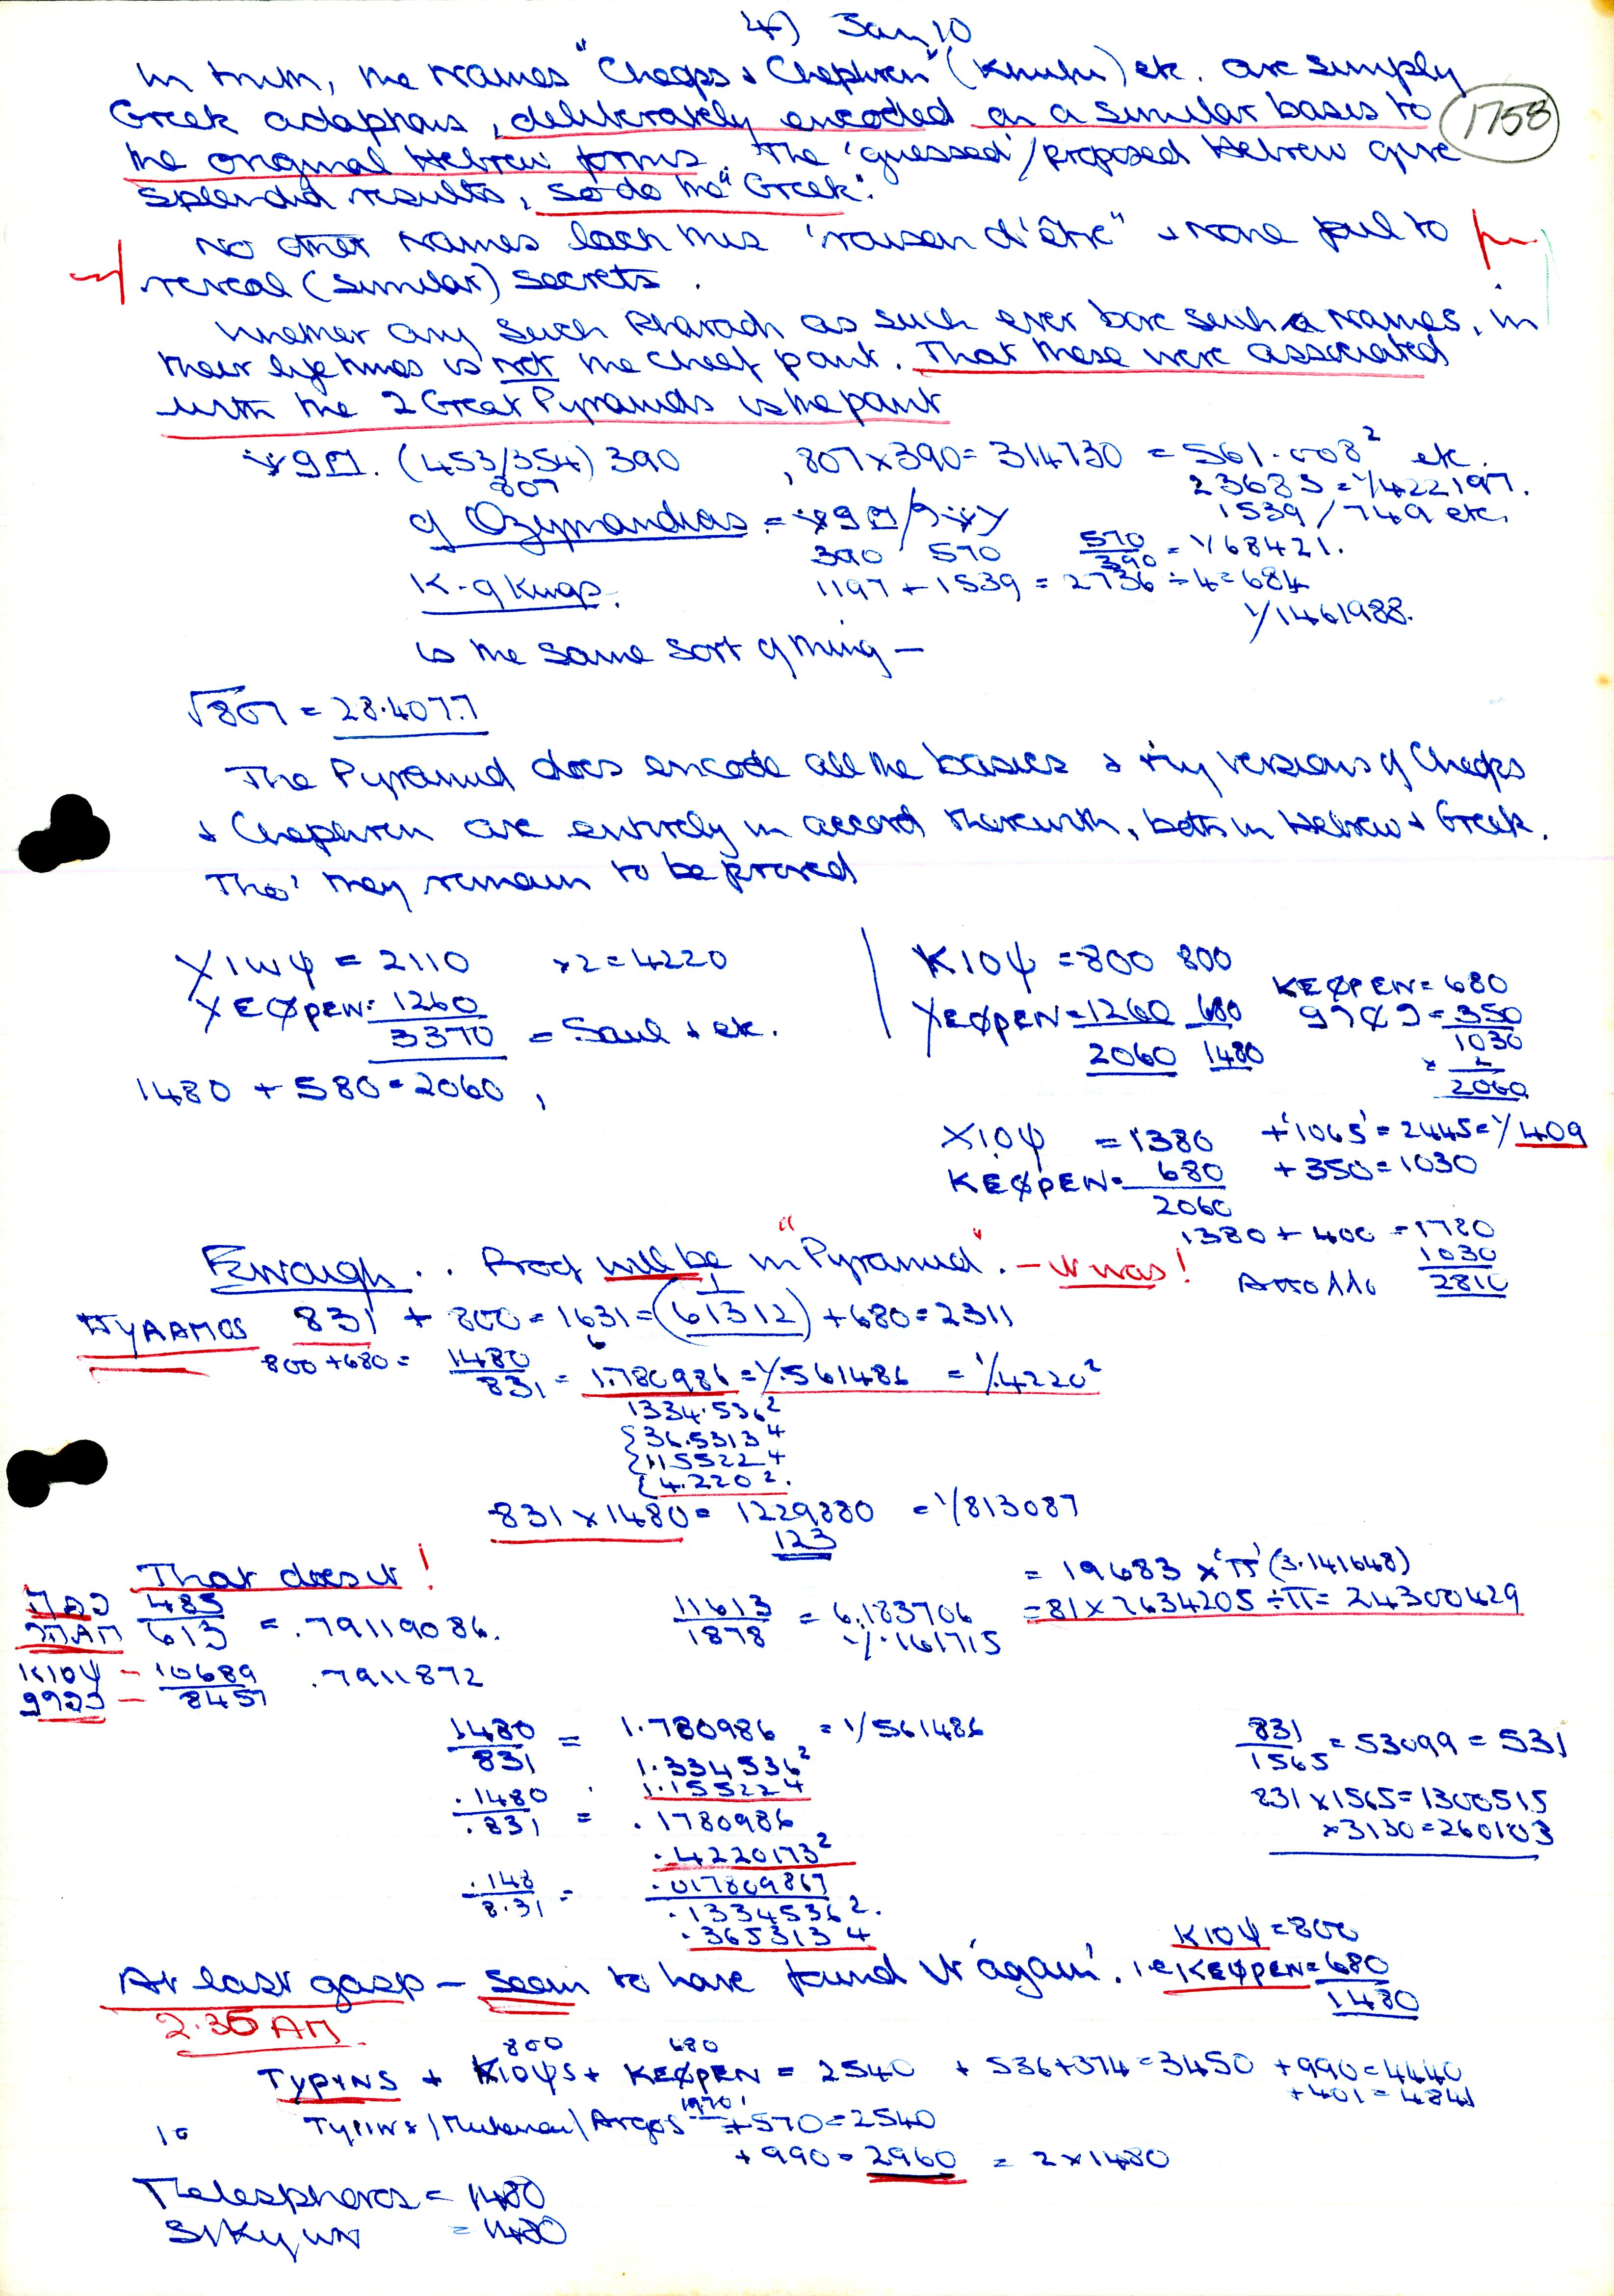 4) Jan 10
In truth, the names "Cheops & Chephren" (Khufu) etc. are simply
Greek adaptions, deliberately encoded on a similar basis to
1758
the original Hebrew forms. The 'guessed'/proposed Hebrew give
splendid results, so do the "Greek".
No other names lack this 'raison d'être" & none fail to
reveal (similar) secrets.
Whether any such Pharaoh as such ever bore such a names, in
their lifetimes is not the chief point. That these were associated
with the 2 Great Pyramids is the point
(453/354) 390 , 807 x 390 = 314730 = 561.008² etc.
807
23683 = 1/422197.
1539 / 749 etc.
of Ozymandias =
390 570 570/390 = 1/68421.
K. of Kings. 1197 + 1539 = 2736 ÷ 4 = 684
1/1461988.
is the same sort of thing –
√807 = 28.4077
The Pyramid does encode all the basics & my versions of Cheops
& Chephren are entirely in accord therewith, both in Hebrew & Greek.
Tho' they remain to be proved
ΧΙωψ = 2110 x2 = 4220
ΧΕΦΡΕΝ = 1260
3370 = Saul & etc.
1480 + 580 = 2060,
ΚΙΟψ = 800 800
ΧΕΦΡΕΝ = 1260 680
2060 1480
ΚΕΦΡΕΝ = 680
= 350
1030
x 2
2060
ΧΙΟψ = 1380 + '1065' = 2445 = 1/409
ΚΕΦΡΕΝ = 680 + 350 = 1030
2060
1380 + 400 = 1780
1030
Apollo 2810
Enough . . Proof will be in "Pyramid". – it was!
831 + 800 = 1631 = (61312) + 680 = 2311
800 + 680 = 1480/831 = 1.780986 = 1/.561486 = 1/.4220²
1334.536²
36.5313 4
1.15522 4
4.220 2.
831 x 1480 = 1229880 = 1/813087
123
That does it!
= 19683 x 'π' (3.141648)
= 81 x 7634205 ÷ π = 24300429
485/613 = .79119086.
11613/1878 = 6.183706
1/.161715
ΚΙΟψ – 10689/8451 .7911872
1480/831 = 1.780986 = 1/561486
1.334536²
1.15522 4
.1480/.831 = .1780986
.4220173²
.148/8.31 = .017809867
.1334536².
.365313 4
831/1565 = 53099 = 531
831 x 1565 = 1300515
x 3130 = 260103
At last gasp – seem to have found it 'again'. i.e.
ΚΙΟψ = 800
ΚΕΦΡΕΝ = 680
1480
2.35 AM.
800 680
ΤΥΡΥΝS + ΚΙΟψS + ΚΕΦΡΕΝ = 2540 + 536 + 374 = 3450 + 990 = 4440
+ 401 = 4841
1970
+ 570 = 2540
+ 990 = 2960 = 2 x 1480
Telesphoros = 1480
SIKyωN = 1480